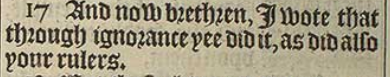 17 And now brethren, I wote that
through ignorance yee did it, as did also
your rulers.